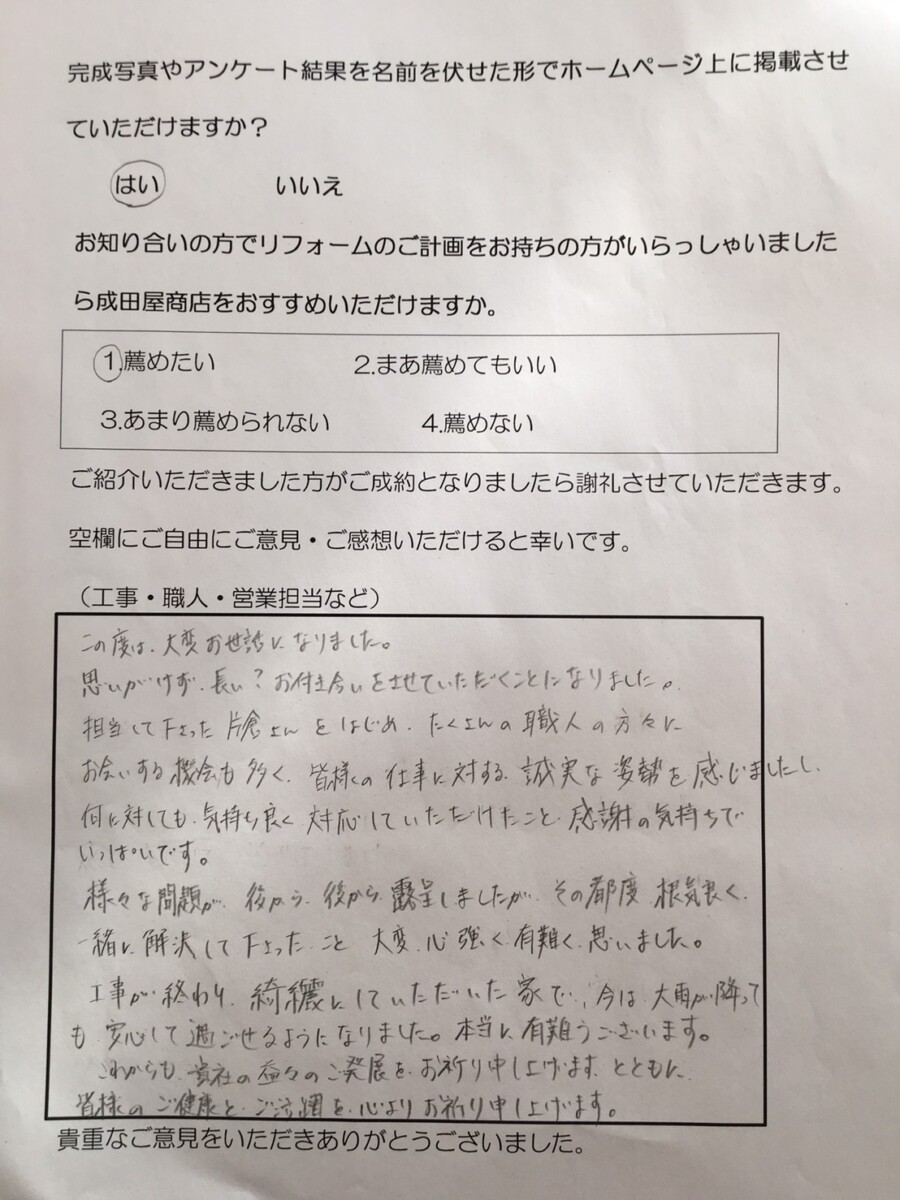 完成写真やアンケート結果を名前を伏せた形でホームページ上に掲載させ
ていただけますか？
はい　いいえ
お知り合いの方でリフォームのご計画をお持ちの方がいらっしゃいました
ら成田屋商店をおすすめいただけますか。
1.薦めたい　2.まあ薦めてもいい
3.あまり薦められない　4.薦めない
ご紹介いただきました方がご成約となりましたら謝礼させていただきます。
空欄にご自由にご意見・ご感想いただけると幸いです。
（工事・職人・営業担当など）
この度は、大変お世話になりました。
思いがけず、長い？お付き合いをさせていただくことになりました。
担当して下さった片倉さんをはじめ、たくさんの職人の方々に
お会いする機会も多く、皆様の仕事に対する誠実な姿勢を感じましたし、
何に対しても、気持ち良く対応していただけたこと、感謝の気持ちで
いっぱいです。
様々な問題が、後から、後から、露呈しましたが、その都度、根気良く、
一緒に解決して下さったこと、大変、心強く有難く、思いました。
工事が終わり、綺麗にしていただいた家で、今は、大雨が降って
も安心して過ごせるようになりました。本当に有難うございます。
これからも、貴社の益々のご発展を、お祈り申し上げます、とともに、
皆様のご健康と、ご活躍を、心よりお祈り申し上げます。
貴重なご意見をいただきありがとうございました。